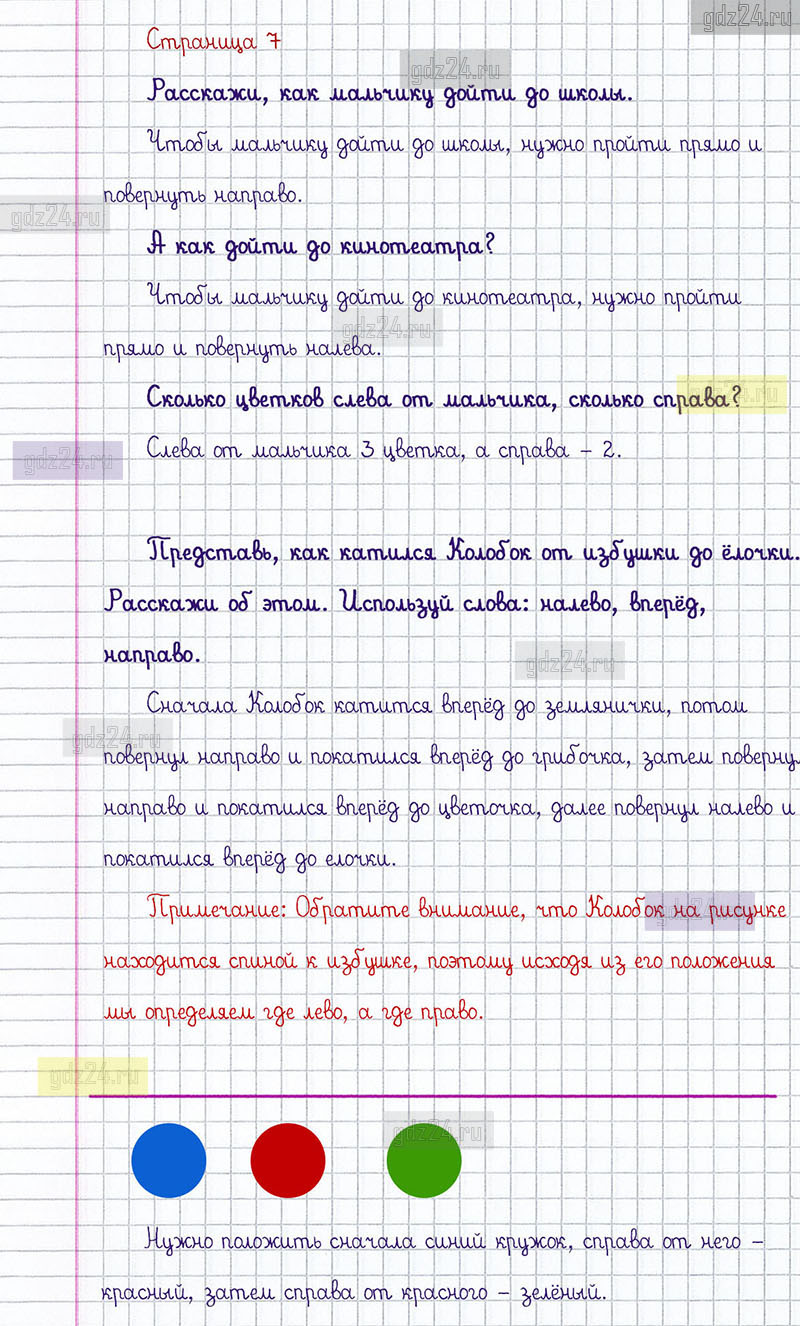 gdz24.ru
Страница 7
gdz24.ru
Расскажи, как мальчику дойти до школы.
Чтобы мальчику дойти до школы, нужно пройти прямо и
повернуть направо.
gdz24.ru
А как дойти до кинотеатра?
Чтобы мальчику дойти до кинотеатра, нужно пройти
gdz24.ru
прямо и повернуть налева.
Сколько цветков слева от мальчика, сколько справа?
gdz24.ru
Слева от мальчика 3 цветка, а справа – 2.
gdz24.ru
Представь, как катился Колобок от избушки до ёлочки.
Расскажи об этом. Используй слова: налево, вперёд,
направо.
gdz24.ru
Сначала Колобок катится вперёд до землянички, потом
gdz24.ru
повернул направо и покатился вперёд до грибочка, затем повернул
направо и покатился вперёд до цветочка, далее повернул налево и
покатился вперёд до елочки.
Примечание: Обратите внимание, что Колобок на рисунке
gdz24.ru
находится спиной к избушке, поэтому исходя из его положения
мы определяем где лево, а где право.
gdz24.ru
gdz24.ru
Нужно положить сначала синий кружок, справа от него –
красный, затем справа от красного – зелёный.